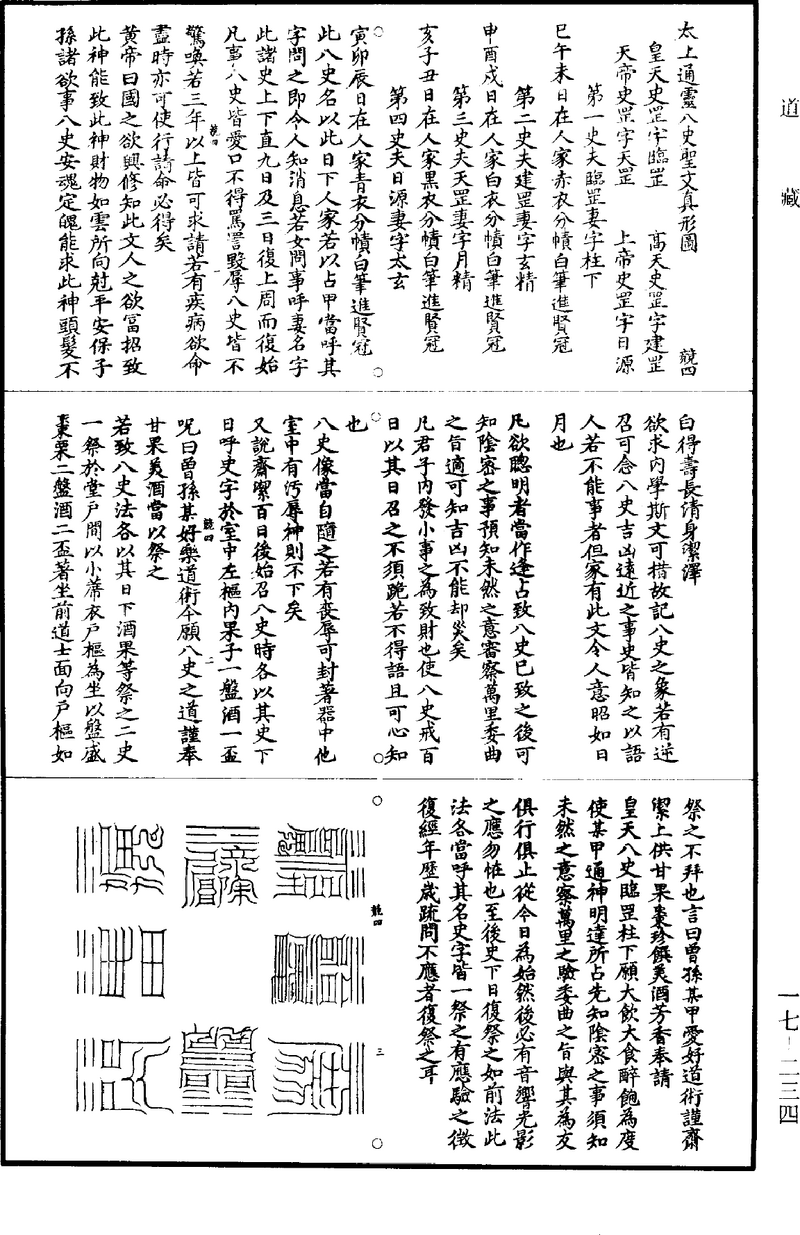 道藏
太上通靈八史聖文真形圖
競四
皇天史罡字臨罡
高天史罡字建罡
天帝史罡字天罡
上帝史罡字日源
第一史夫臨罡妻字柱下
巳午未日在人家赤衣分幘白筆進賢冠
第二史夫建罡妻字玄精
申酉戌日在人家白衣分幘白筆進賢冠
第三史夫天罡妻字月精
亥子丑日在人家黑衣分幘白筆進賢冠
第四史夫日源妻字太玄
寅卯辰日在人家青衣分幘白筆進賢冠
此八史名以此日下人家若以占甲當呼其
字問之即令人知消息若女問事呼妻名字
此諸史上下直九日及三日復上周而復始
凡事八史皆愛口不得罵詈毀辱八史皆不
競四
一
驚喚若三年以上皆可求請若有疾病欲命
盡時亦可使行請命必得矣
黃帝曰國之欲興修知此文人之欲富招致
此神能致此神財物如雲所向尅平安保子
孫諸欲事八史安魂定魄能求此神頭髮不
白得壽長清身潔澤
欲求內學斯文可措故記八史之象若有逆
召可念八史吉凶遠近之事史皆知之以語
人若不能事者但家有此文令人意昭如日
月也
凡欲聰明者當作逢占致八史已致之後可
知陰密之事預知未然之意審察萬里委曲
之旨適可知吉凶不能却災矣
凡君子內發小事之為致財也使八史戒百
日以其日召之不須跪若不得語且可心知
也
八史像當自隨之若有喪辱可封著器中他
室中有污辱神則不下矣
又說齋潔百日後始召八史時各以其史下
日呼史字於室中左樞內果子一盤酒一盃
競四
二
呪曰曾孫某好樂道術今願八史之道謹奉
甘果美酒當以祭之
若致八史法各以其日下酒果等祭之二史
一祭於堂戶間以小蓆衣戶樞為坐以盤盛
棗栗二盤酒二盃著坐前道士面向戶樞如
祭之不拜也言曰曾孫某甲愛好道術謹齋
潔上供甘果棗珍饌美酒芳香奉請
皇天八史臨罡柱下願大飲大食醉飽為度
使某甲通神明達所占先知陰密之事須知
未然之意察萬里之驗委曲之旨與其為友
俱行俱止從今日為始然後必有音響光影
之應勿恠也至後史下日復祭之如前法此
法各當呼其名史字皆一祭之有應驗之徵
復經年歷歲疏問不應者復祭之耳
競四
三
一七—二三四